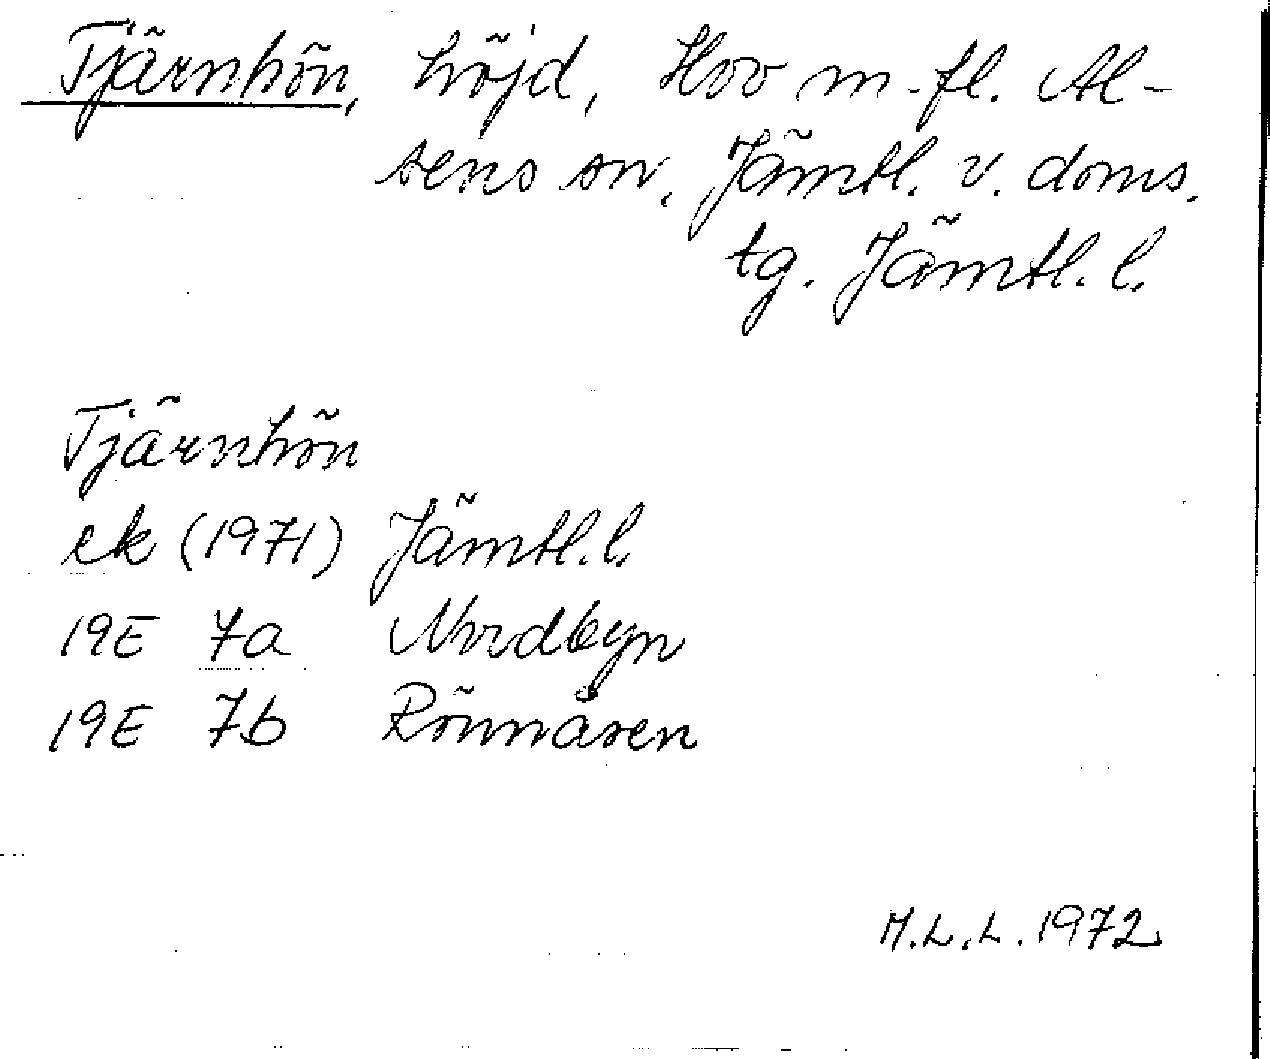 Tjärnhön, höjd, Hov m.fl. Al-
sens sn, Jämtl. v. doms.
tg. Jämtl. l.
Tjärnhön
ek (1971) Jämtl. l.
19E 7a Nordbyn
19E 7b Rönnåsen
M.L.L. 1972